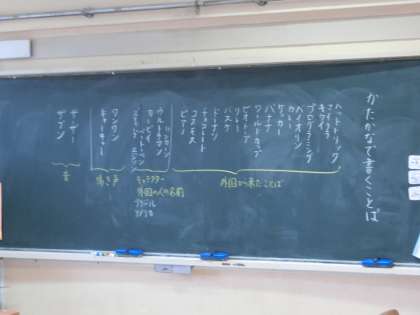 かたかなで書くことば
ハットトリック
マイクラ
キウイ
プログラミング
バイオリン
カレー
サッカー
バナナ
ワールドカップ
ピオトープ
リレー
バスケ
ドーナツ
チョコレート
コスモス
ピアノ
外国から来たことば
ウルトラマン
カービィ
キャラクター
外国の人の名前
ブラジル
アメリカ
ワンワン
キャーキャー
鳴き声
ザーザー
ザブン
音